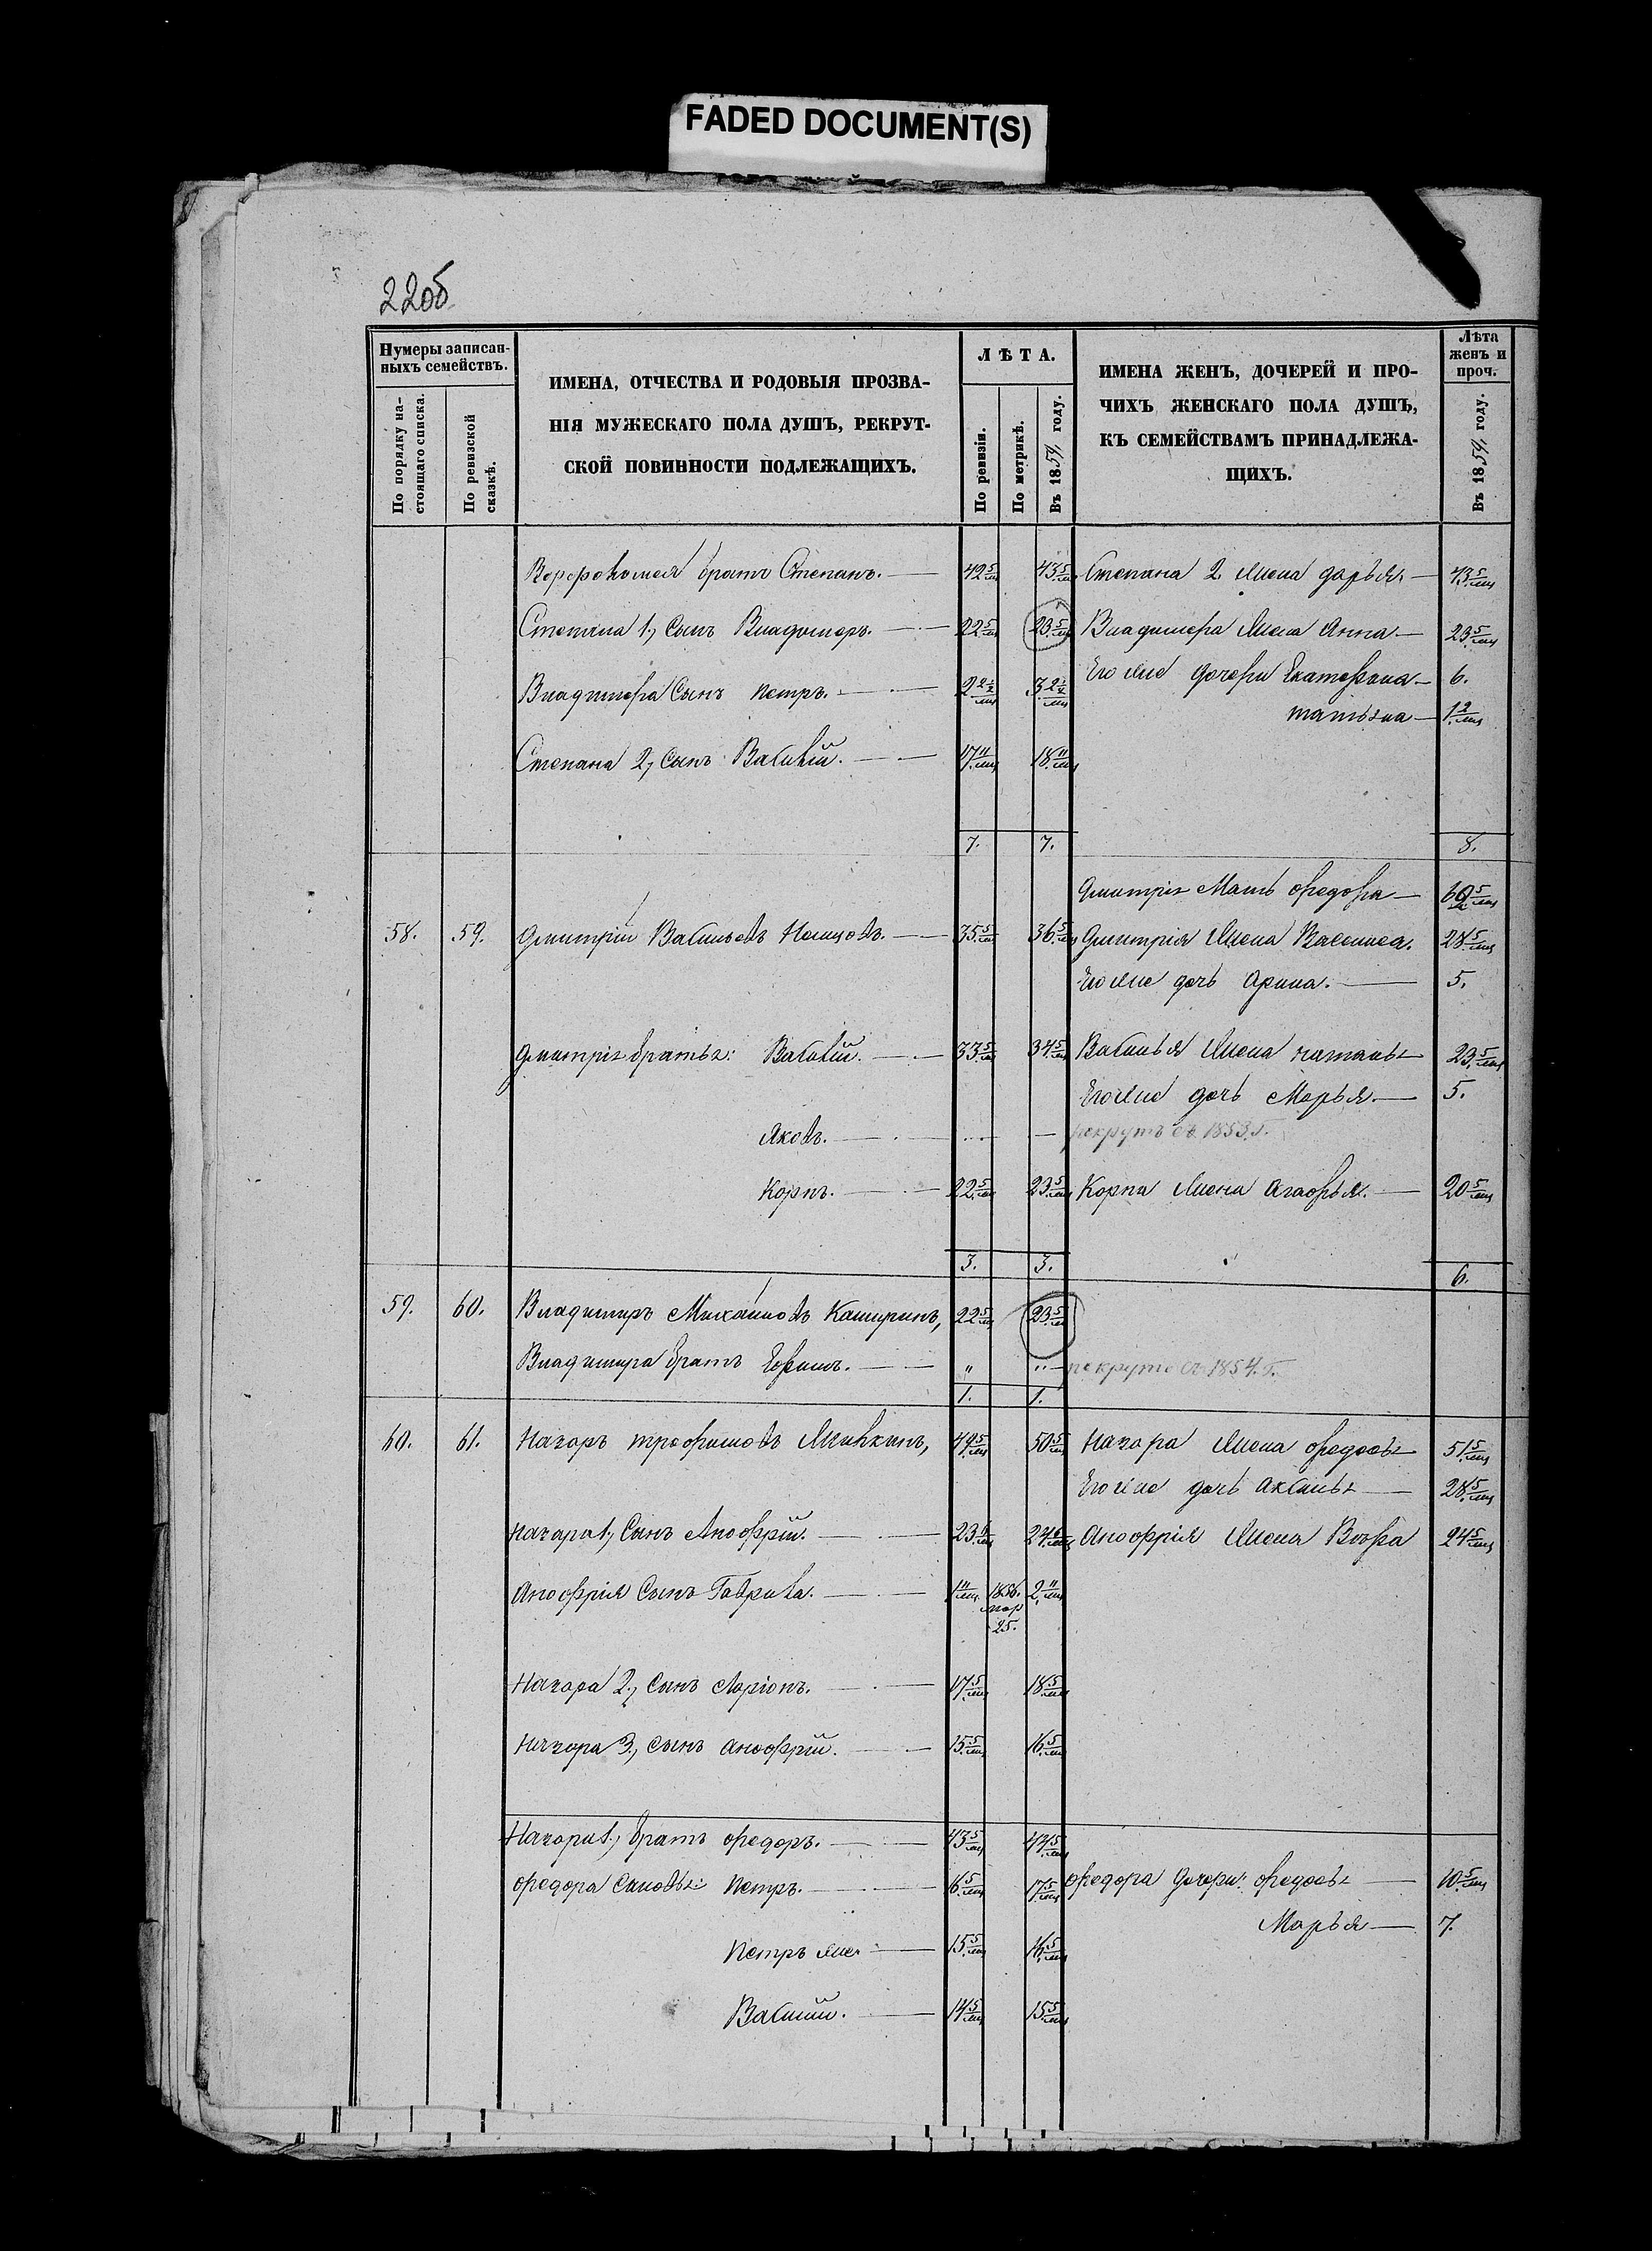 FADED DOCUMENT(S)
22об
Нумеры записан-
ныхъ семействъ.
По порядку на-
стоящаго списка.
По ревизской
сказкѣ.
ИМЕНА, ОТЧЕСТВА И РОДОВЫЯ ПРОЗВА-
НІЯ МУЖЕСКАГО ПОЛА ДУШЪ, РЕКРУТ-
СКОЙ ПОВИННОСТИ ПОДЛЕЖАЩИХЪ.
ЛѢТА.
По ревизіи.
По метрикѣ.
Въ 1859 году.
ИМЕНА ЖЕНЪ, ДОЧЕРЕЙ И ПРО-
ЧИХЪ ЖЕНСКАГО ПОЛА ДУШЪ,
КЪ СЕМЕЙСТВАМЪ ПРИНАДЛЕЖА-
ЩИХЪ.
Лѣта
женъ и
проч.
Въ 1859 году.
братъ Степанъ. 42 5/мц 43 5/мц Степана 2 жена дарья 43 5/мц
Степана 1, Сынъ Владимеръ. 22 5/мц 23 5/мц Владимера жена Анна 23 5/мц
Его же дочери Екатерина 6.
Владимера Сынъ петръ. 2 2½/мц 3 2½/мц
татьяна 1 2/мц
Степана 2, Сынъ Василій. 17 11/мц 18 11/мц
7. 7. 8.
Мать федора 60 5/мц
58. 59. Дмитрій Васильевъ 35 5/мц 36 5/мц Дмитрія жена Василиса. 28 5/мц
Его же дочь Арина. 5.
братья: Василій. 33 5/мц 34 5/мц Василья жена наталья 23 5/мц
Его же дочь Марья. 5.
Яковъ. рекрутъ съ 1853 г.
Корпъ. 22 5/мц 23 5/мц Корпа жена Агафья. 20 5/мц
3. 3. 6.
59. 60. Владимиръ Михайловъ Кашуринъ, 22 5/мц 23 5/мц
Владимира братъ Ефимъ. " " рекрутъ съ 1854 г.
1. 1.
60. 61. Назаръ трофимовъ 49 5/мц 50 5/мц Назара жена федосья 51 5/мц
Его же дочь Аксинья 28 5/мц
Назара 1, Сынъ Анофрій. 23 5/мц 24 5/мц Анофрія жена Вѣра 24 5/мц
Анофрія Сынъ Гаврила. 1 11/мц 1856. 2 11/мц
мар
25.
Назара 2, Сынъ Ларіонъ. 17 5/мц 18 5/мц
Назара 3, Сынъ Анофрій. 15 5/мц 16 5/мц
Назара 1, братъ федоръ. 43 5/мц 44 5/мц
федора Сыновья: Петръ. 16 5/мц 17 5/мц федора дочери: федосья 10 5/мц
Марья 7.
Петръ же 15 5/мц 16 5/мц
Василій. 14 5/мц 15 5/мц